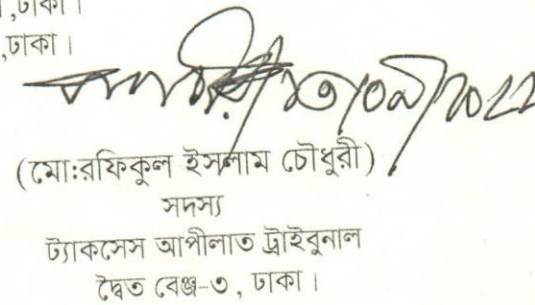 ,ঢাকা।
,ঢাকা।
(মো:রফিকুল ইসলাম চৌধুরী)
সদস্য
ট্যাকসেস আপীলাত ট্রাইবুনাল
দ্বৈত বেঞ্চ-৩, ঢাকা।